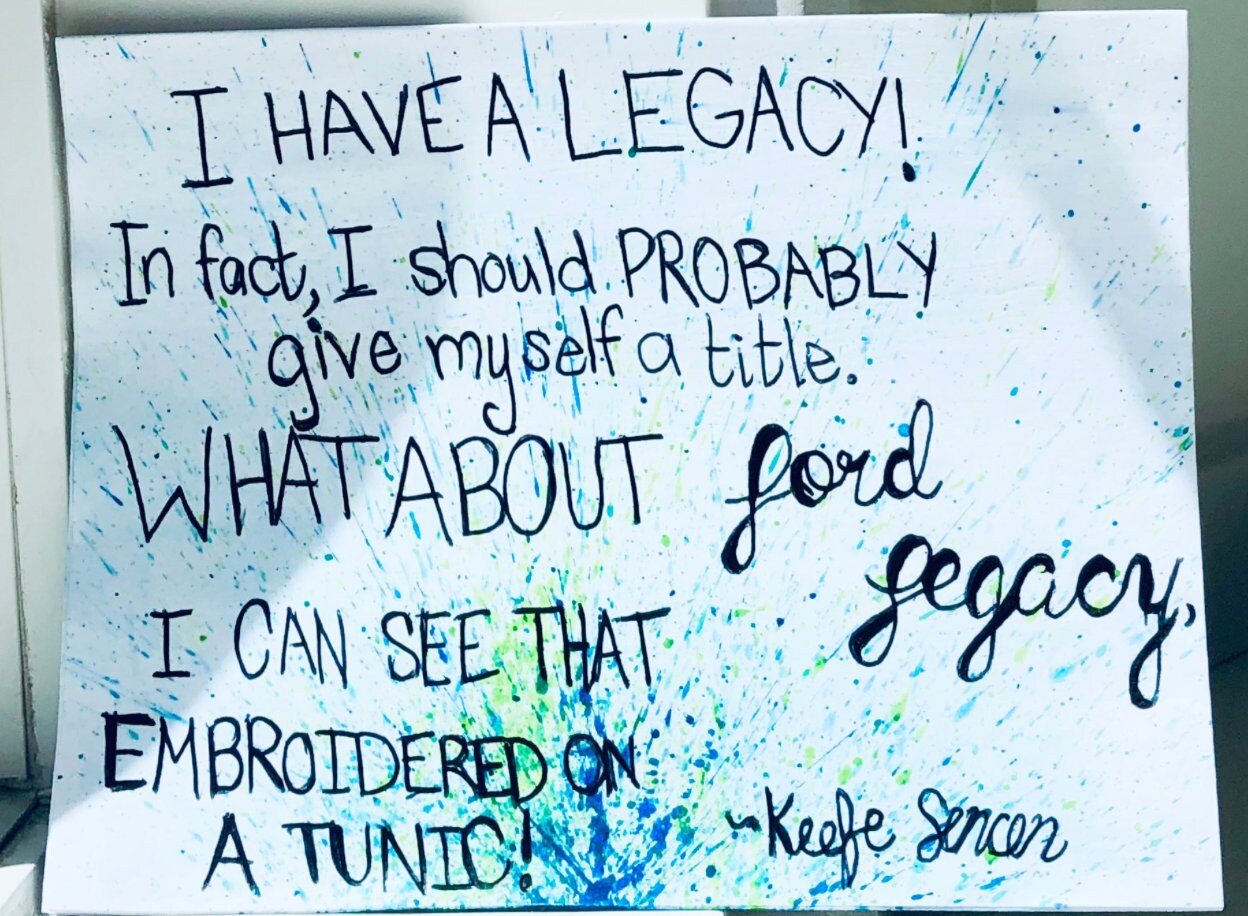 I HAVE A LEGACY!
In fact, I should PROBABLY
give myself a title.
WHAT ABOUT Lord
Legacy,
I CAN SEE THAT
EMBROIDERED ON
A TUNIC!
~Keefe Sencen